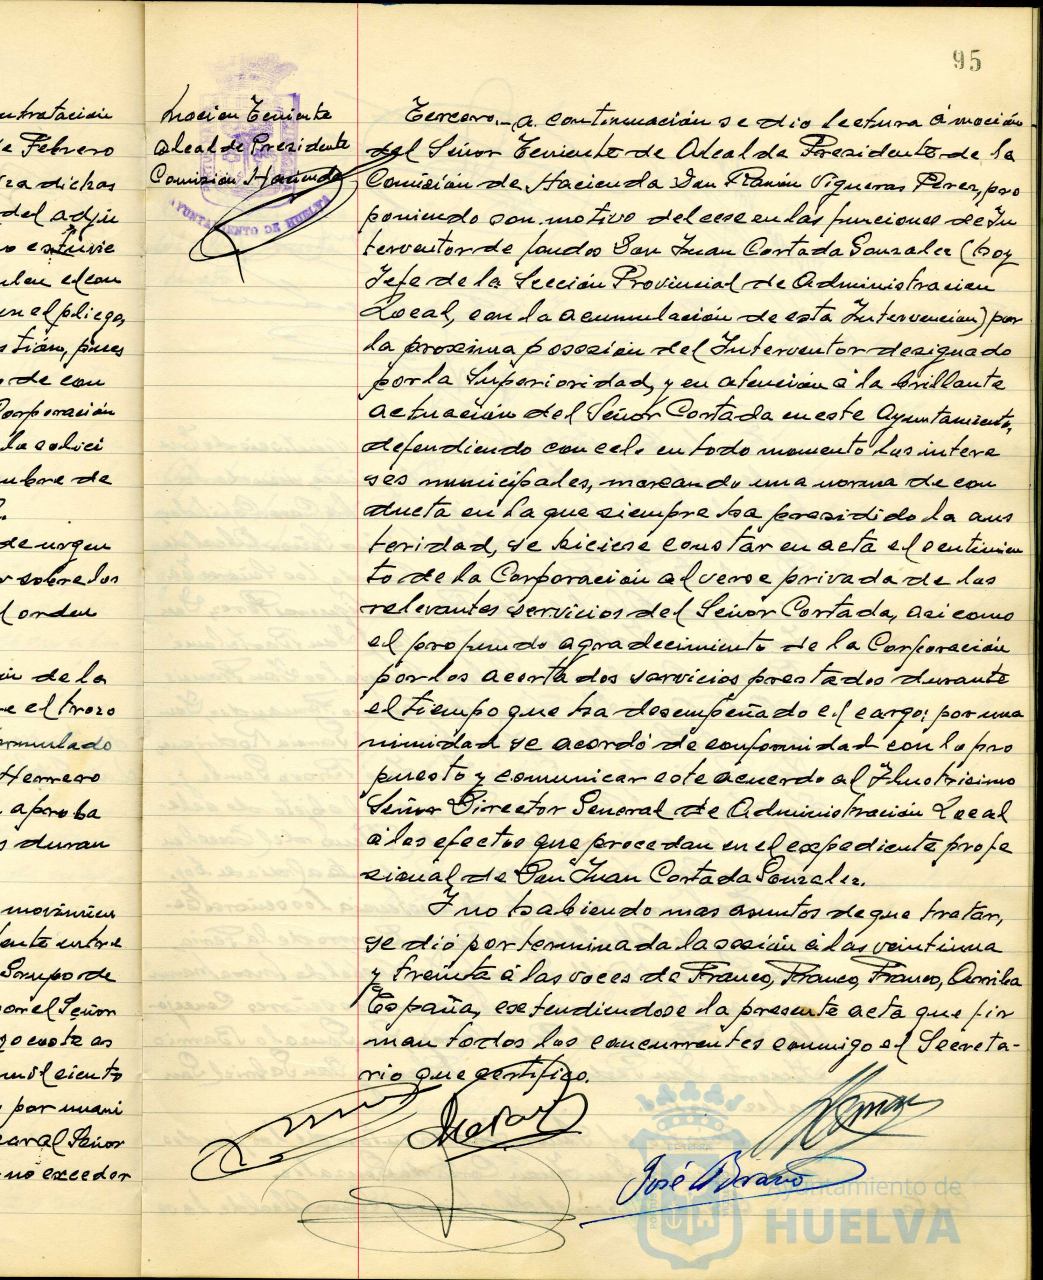 95
ntratación
e Febrero
ra dichas
del adju
o estuvie
en el pliego,
stión, pues
o de con
Corporación
la solici
mbre de
de urgen
r sobre los
l orden
in de la
re el trozo
ormulado
Herrero
aproba
s duran
movimien
ente entre
Grupo de
por el Señor
mil ciento
por unani
Señor
no exceder
Moción Teniente
Alcalde Presidente
Comisión Hacienda
AYUNTAMIENTO DE HUELVA
Tercero.- A continuación se dio lectura á moción
del Señor Teniente de Alcalde Presidente de la
Comisión de Hacienda Don Ramón Vigueras Perez, pro
poniendo con motivo del cese en las funciones de In
terventor de fondos Don Juan Cortada Gonzalez (hoy
Jefe de la Sección Provincial de Administracion
Local, con la acumulación de esta Intervencion) por
la proxima posesión del Interventor designado
por la Superioridad, y en atención á la brillante
actuación del Señor Cortada en este Ayuntamiento,
defendiendo con celo en todo momento los intere
ses municipales, marcando una norma de con
ducta en la que siempre ha presidido la aus
teridad, se hiciese constar en acta el sentimien
to de la Corporación al verse privada de los
relevantes servicios del Señor Cortada, asi como
el profundo agradecimiento de la Corporación
por los acertados servicios prestados durante
el tiempo que ha desempeñado el cargo; por una
nimidad se acordó de conformidad con lo pro
puesto y comunicar este acuerdo al Ilustrisimo
Señor Director General de Administración Local
á los efectos que procedan en el expediente profe
sional de Don Juan Cortada Gonzalez.
Y no habiendo mas asuntos de que tratar,
se dió por terminada la sesión á las veintiuna
y treinta á las voces de Franco, Franco, Franco, Arriba
España, extendiendose la presente acta que fir
man todos los concurrentes conmigo el Secreta-
rio que certifico.
José
Ayuntamiento de
HUELVA